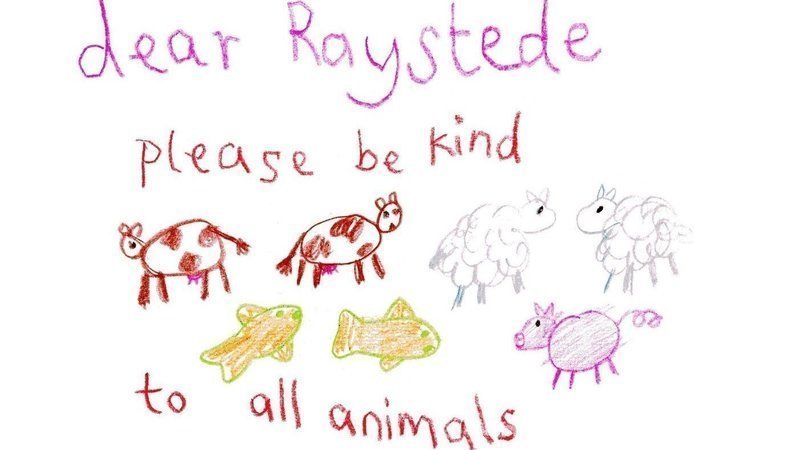 dear Raystede
please be kind
to all animals